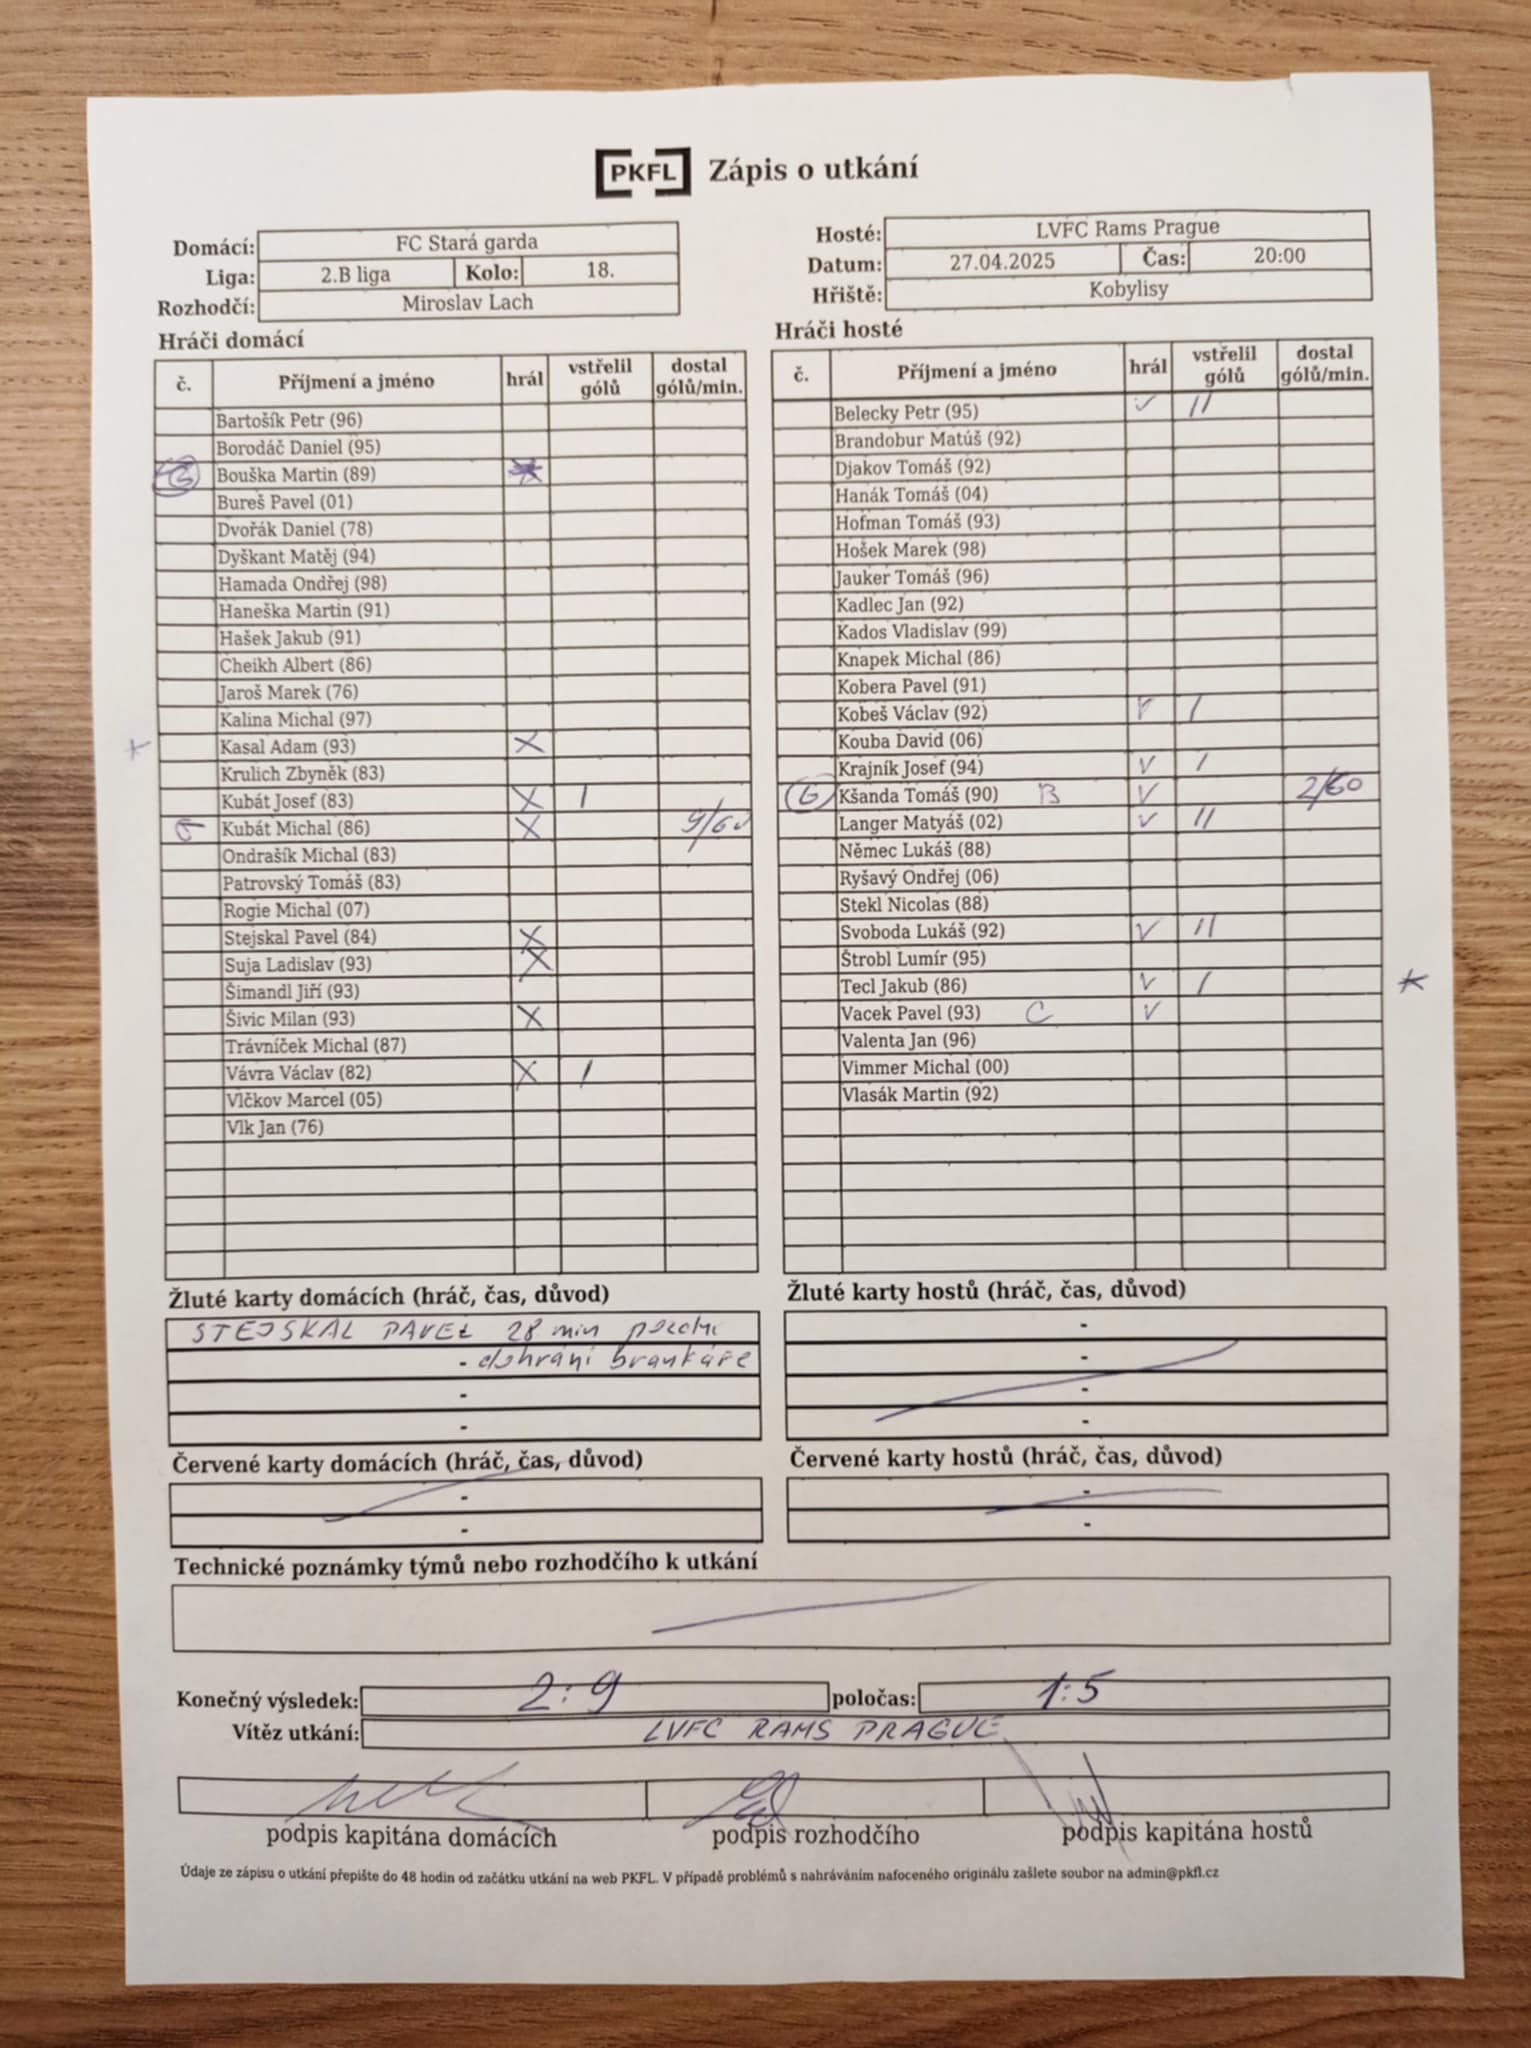 PKFL Zápis o utkání
Domácí: FC Stará garda
Liga: 2.B liga Kolo: 18.
Rozhodčí: Miroslav Lach
Hosté: LVFC Rams Prague
Datum: 27.04.2025 Čas: 20:00
Hřiště: Kobylisy
Hráči domácí
č. Příjmení a jméno hrál vstřelil gólů dostal gólů/min.
Bartošík Petr (96)
Borodáč Daniel (95)
Bouška Martin (89)
Bureš Pavel (01)
Dvořák Daniel (78)
Dyškant Matěj (94)
Hamada Ondřej (98)
Haneška Martin (91)
Hašek Jakub (91)
Cheikh Albert (86)
Jaroš Marek (76)
Kalina Michal (97)
Kasal Adam (93) X
Krulich Zbyněk (83)
Kubát Josef (83) X I
G Kubát Michal (86) X 9/60
Ondrašík Michal (83)
Patrovský Tomáš (83)
Rogie Michal (07)
Stejskal Pavel (84) X
Suja Ladislav (93) X
Šimandl Jiří (93)
Šivic Milan (93) X
Trávníček Michal (87)
Vávra Václav (82) X I
Vlčkov Marcel (05)
Vlk Jan (76)
Hráči hosté
č. Příjmení a jméno hrál vstřelil gólů dostal gólů/min.
Belecky Petr (95) V II
Brandobur Matúš (92)
Djakov Tomáš (92)
Hanák Tomáš (04)
Hofman Tomáš (93)
Hošek Marek (98)
Jauker Tomáš (96)
Kadlec Jan (92)
Kados Vladislav (99)
Knapek Michal (86)
Kobera Pavel (91)
Kobeš Václav (92) V I
Kouba David (06)
Krajník Josef (94) V I
G Kšanda Tomáš (90) B V 2/60
Langer Matyáš (02) V II
Němec Lukáš (88)
Ryšavý Ondřej (06)
Stekl Nicolas (88)
Svoboda Lukáš (92) V II
Štrobl Lumír (95)
Tecl Jakub (86) V I
Vacek Pavel (93) C V
Valenta Jan (96)
Vimmer Michal (00)
Vlasák Martin (92)
Žluté karty domácích (hráč, čas, důvod)
STEJSKAL PAVEL 28 min pozdní
- dohrání brankáře
-
-
Žluté karty hostů (hráč, čas, důvod)
-
-
-
-
Červené karty domácích (hráč, čas, důvod)
-
-
Červené karty hostů (hráč, čas, důvod)
-
-
Technické poznámky týmů nebo rozhodčího k utkání
Konečný výsledek: 2:9 poločas: 1:5
Vítěz utkání: LVFC RAMS PRAGUE
podpis kapitána domácích podpis rozhodčího podpis kapitána hostů
Údaje ze zápisu o utkání přepište do 48 hodin od začátku utkání na web PKFL. V případě problémů s nahráváním nafoceného originálu zašlete soubor na admin@pkfl.cz